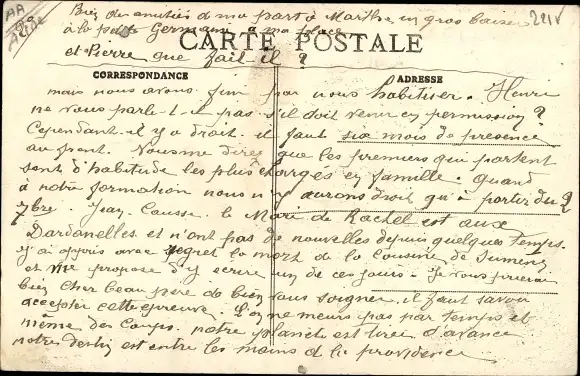 Bien des amitiés de ma part à Marthe, un gros baiser
à la petite Germaine à ma place
et Pierre que fait-il ?
CARTE POSTALE
CORRESPONDANCE
ADRESSE
mais nous avons fini par nous habituer. Henri
ne vous parle-t-il pas s'il doit venir en permission ?
Cependant il y a droit il faut six mois de présence
au front. Vous me direz que les premiers qui partent
sont d'habitude les plus chargés en famille. Quand
à notre formation nous n'y aurons droit qu'à partir du 2
7bre. Jean Causse le Mari de Rachel est aux
Dardanelles et n'ont pas de nouvelles depuis quelques temps.
j'ai appris avec regret la mort de la Cousine de
et me propose d'y écrire un de ces jours. Je vous prierai
bien cher beau père de bien vous soigner, il faut savoir
accepter cette épreuve. L'on ne meurt pas par temps et
même des Coups, notre planète est tirée d'avance
notre destin est entre les mains de la providence